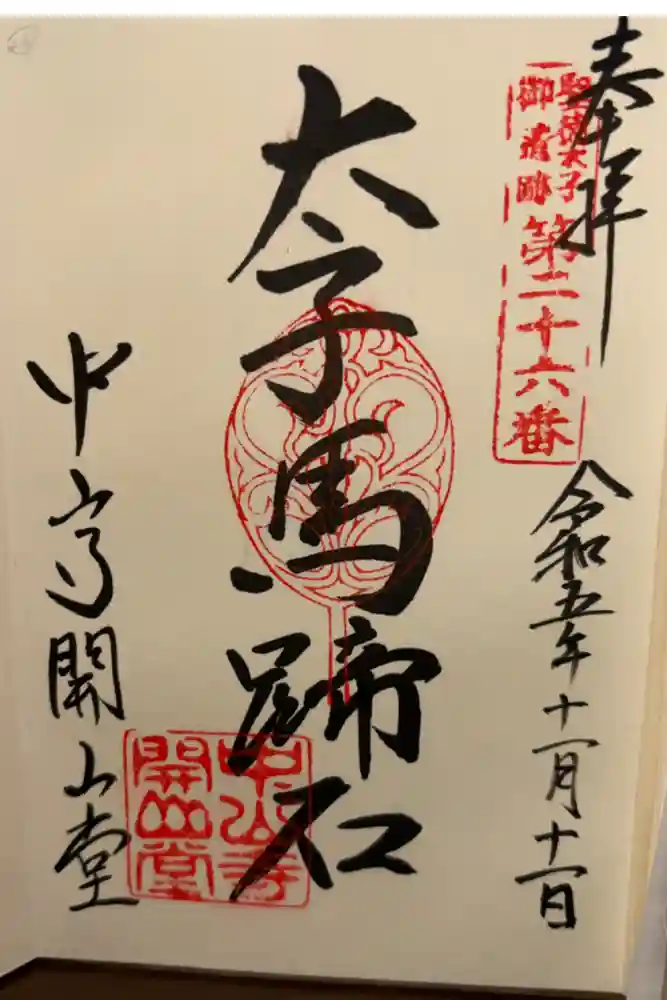 奉拝
聖徳太子
御遺跡
第二十六番
令和五年十一月十一日
太子馬蹄石
中山寺開山堂
中山寺
開山堂